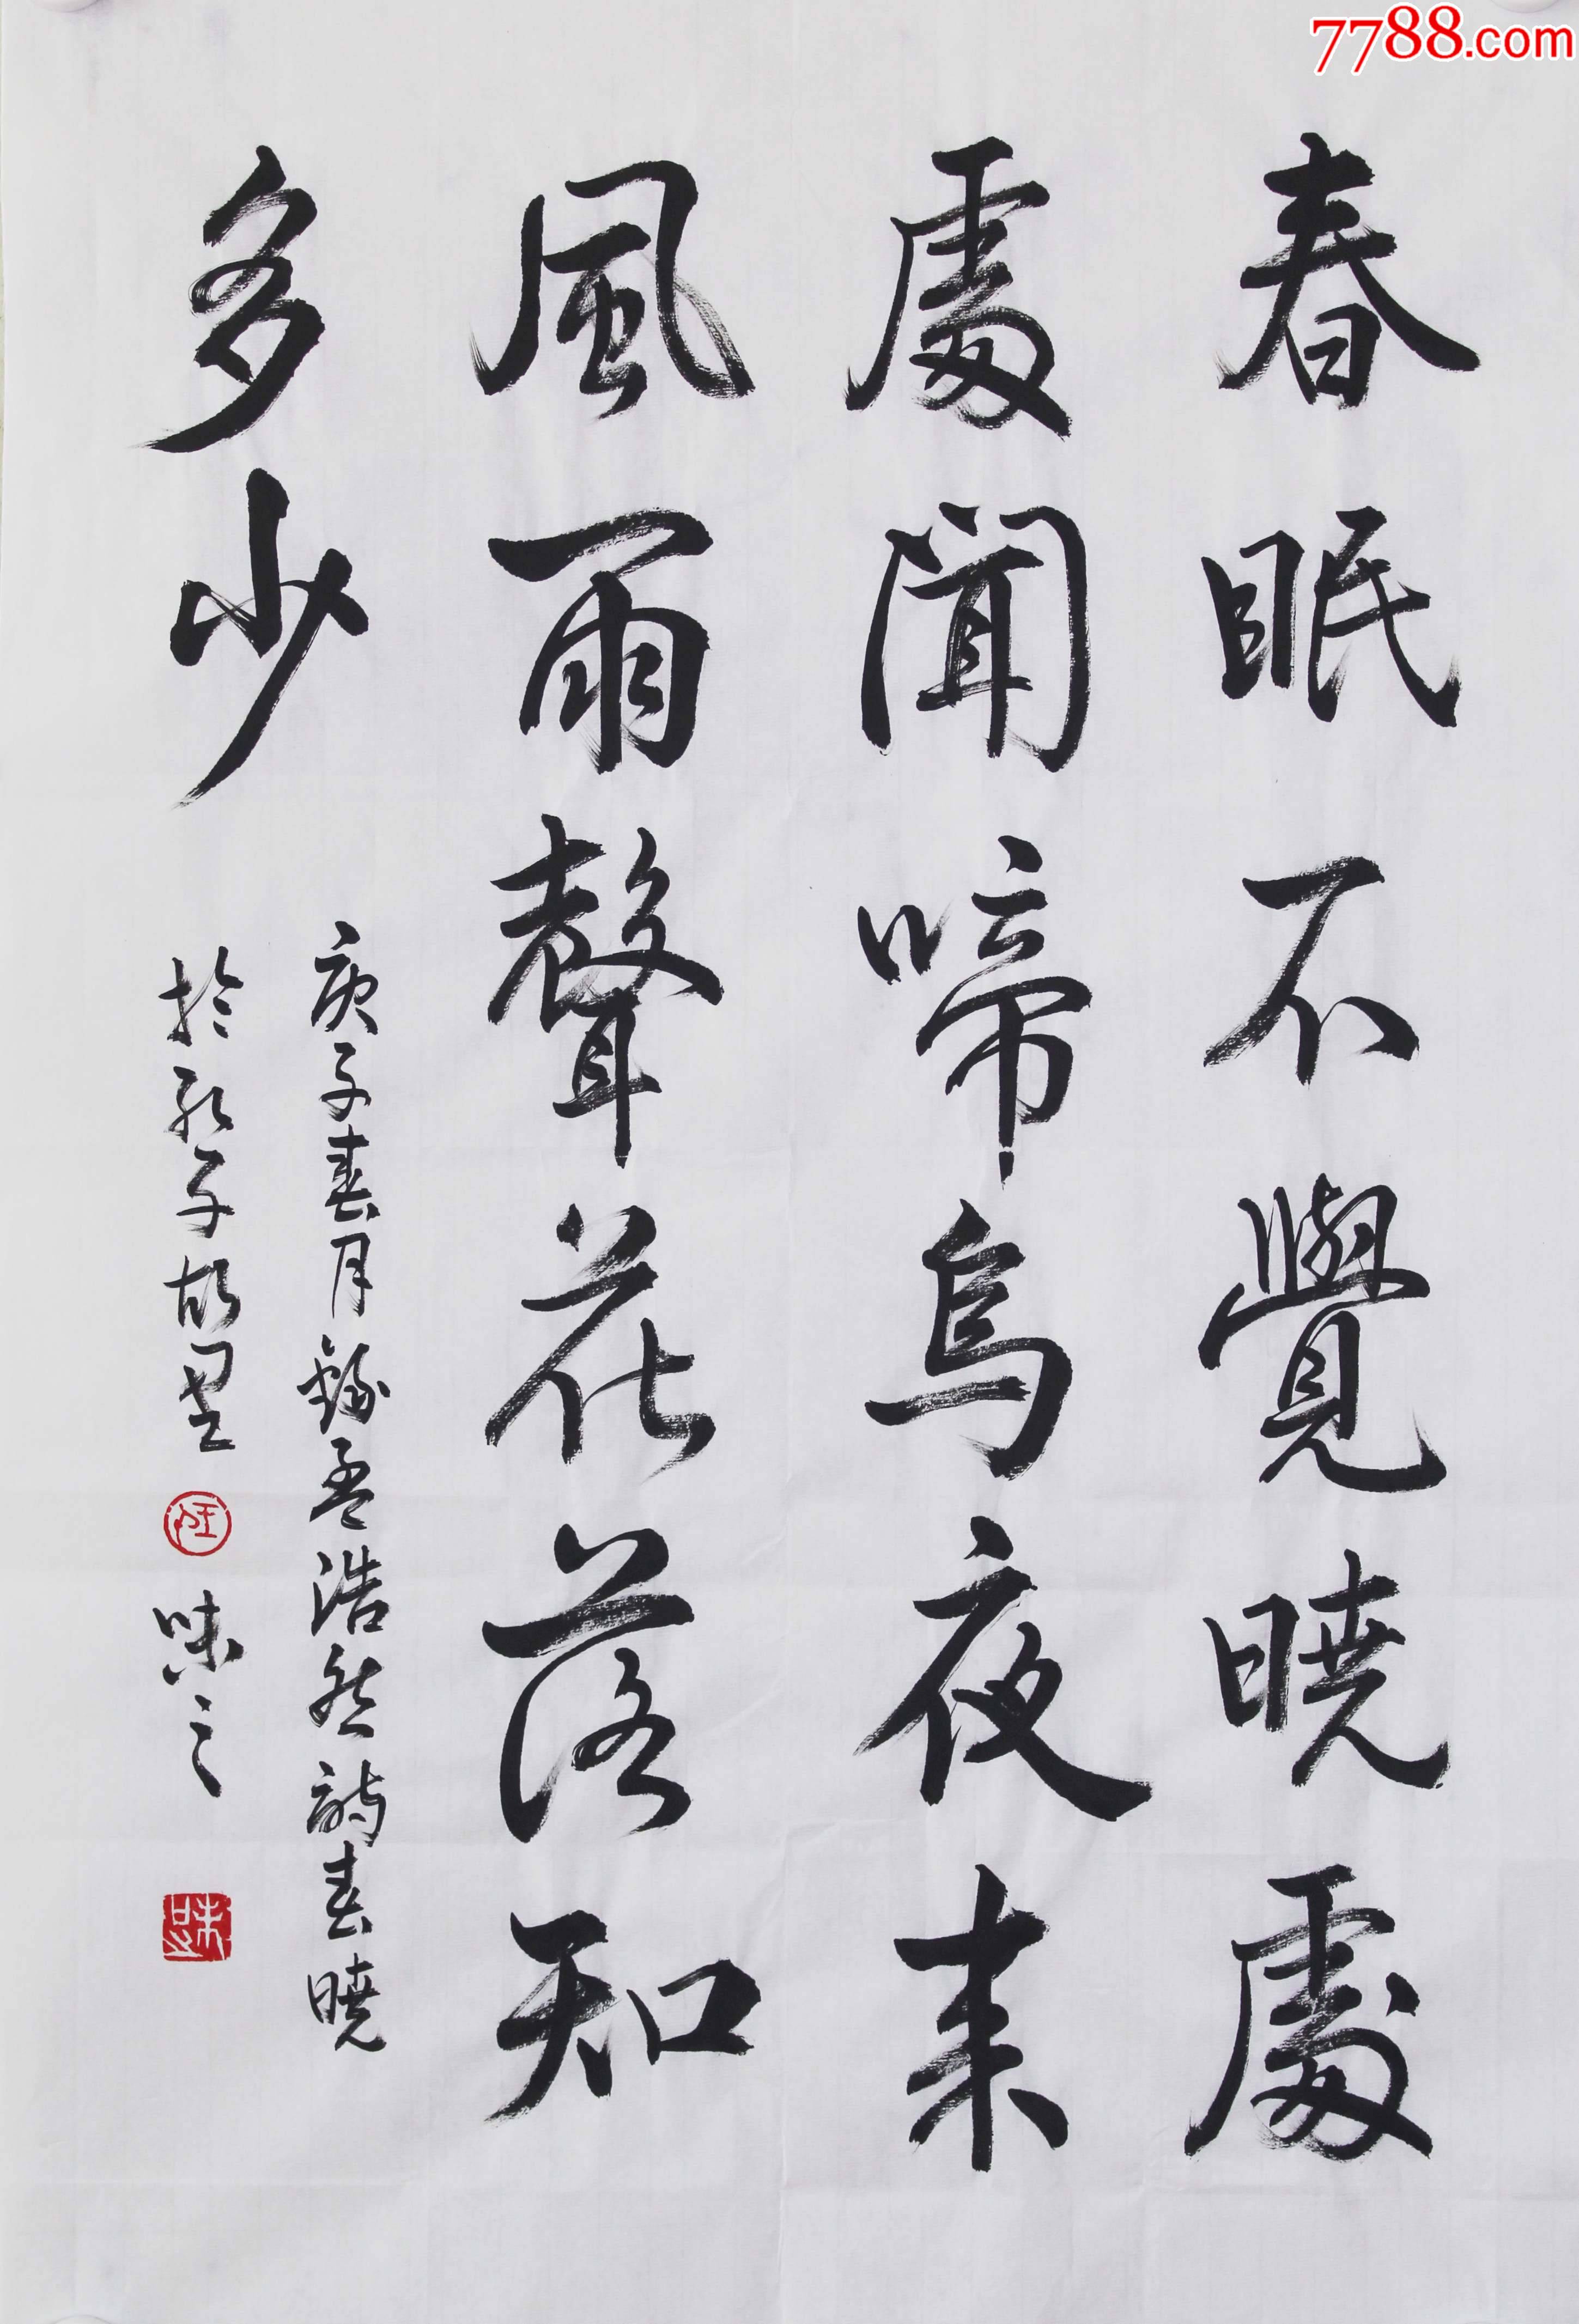 春眠不覺曉處
處聞啼鳥夜来
風雨聲花落知
多少
庚子春月錄孟浩然詩春曉
於孔子故里
味之
7788.com